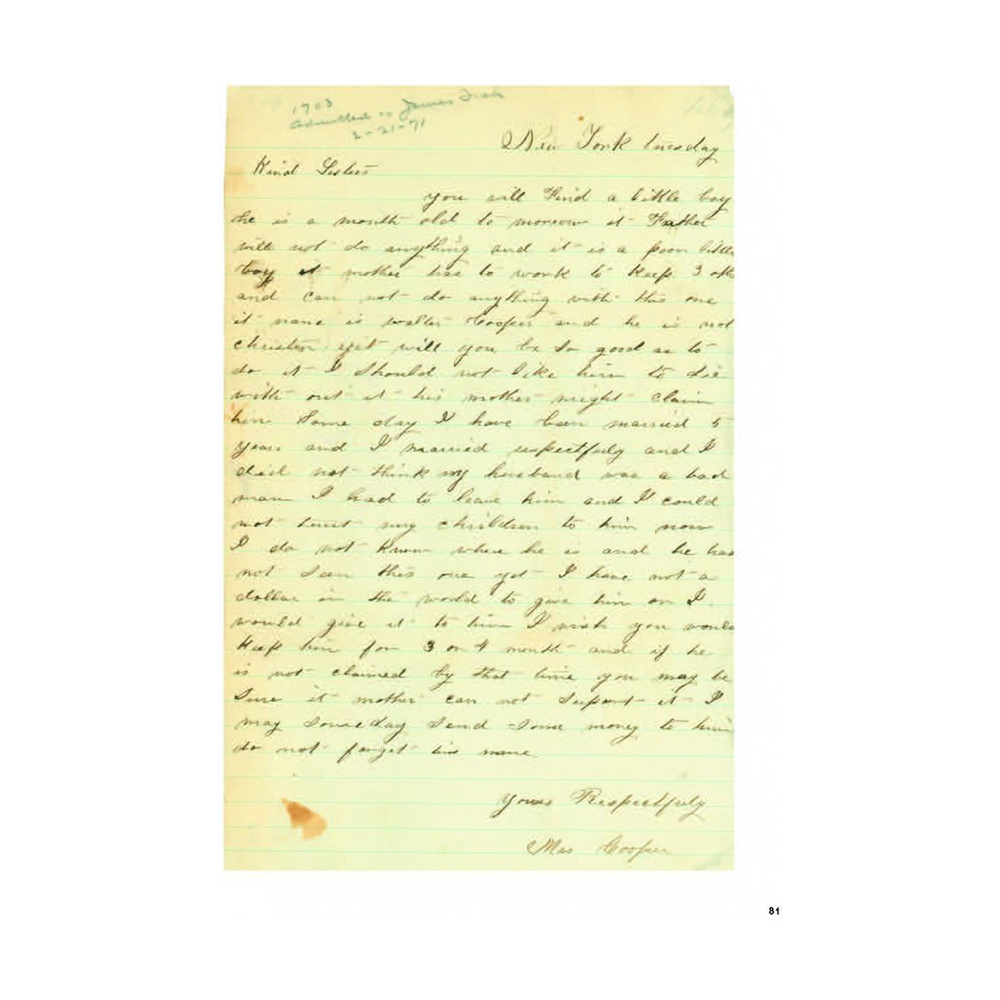 1703
admitted as James Fish
2-21-71
New York tuesday
Kind Sisters
you will Find a little boy
he is a month old to morrow it Father
will not do anything and it is a poor little
boy it mother has to work to keep 3 others
and can not do anything with this one
it name is walter Cooper and he is not
christen yet will you be so good as to
do it I Should not like him to die
with out it his mother might claim
him Some day I have been married 5
years and I married respectfuly and I
did not think my husband was a bad
man I had to leave him and I could
not trust my children to him now
I do not know where he is and he has
not Seen this one yet I have not a
dollar in the world to give him or I
would give it to him I wish you would
Keep him for 3 or 4 month and if he
is not claimed by that time you may be
Sure it mother can not Support it I
may Someday Send Some money to him
do not forget his name
Yours Respectfuly
Mrs Cooper
81